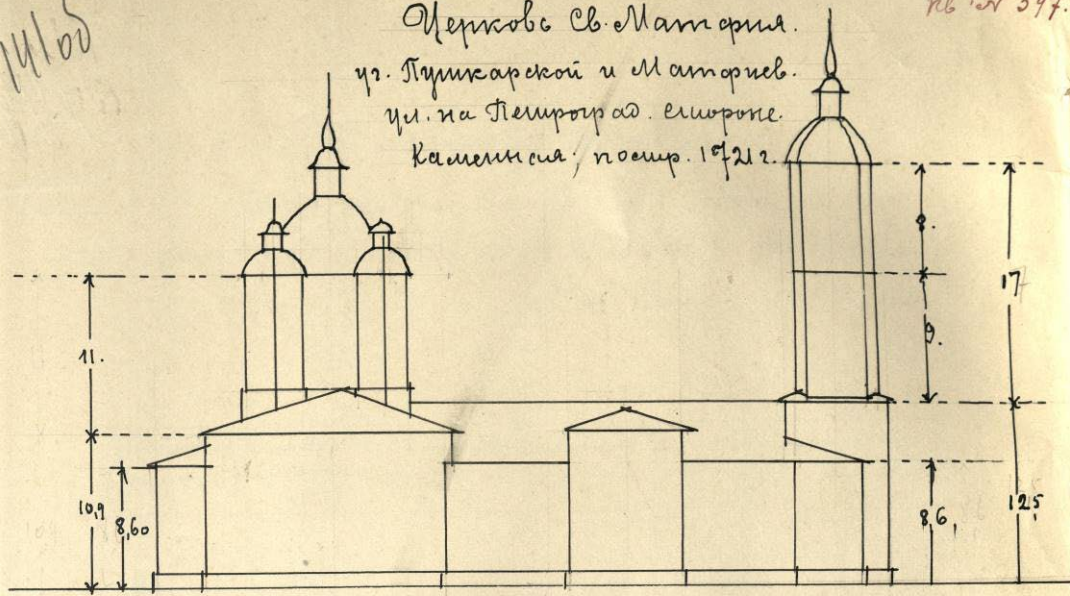 14160
КВ № 597.
Церковь Св. Матфия.
уг. Пушкарской и Матфиев.
ул. на Петроград. стороне.
Каменная; постр. 1721 г.
8.
17
9.
11.
10,9
8,60
8,6,
12,5